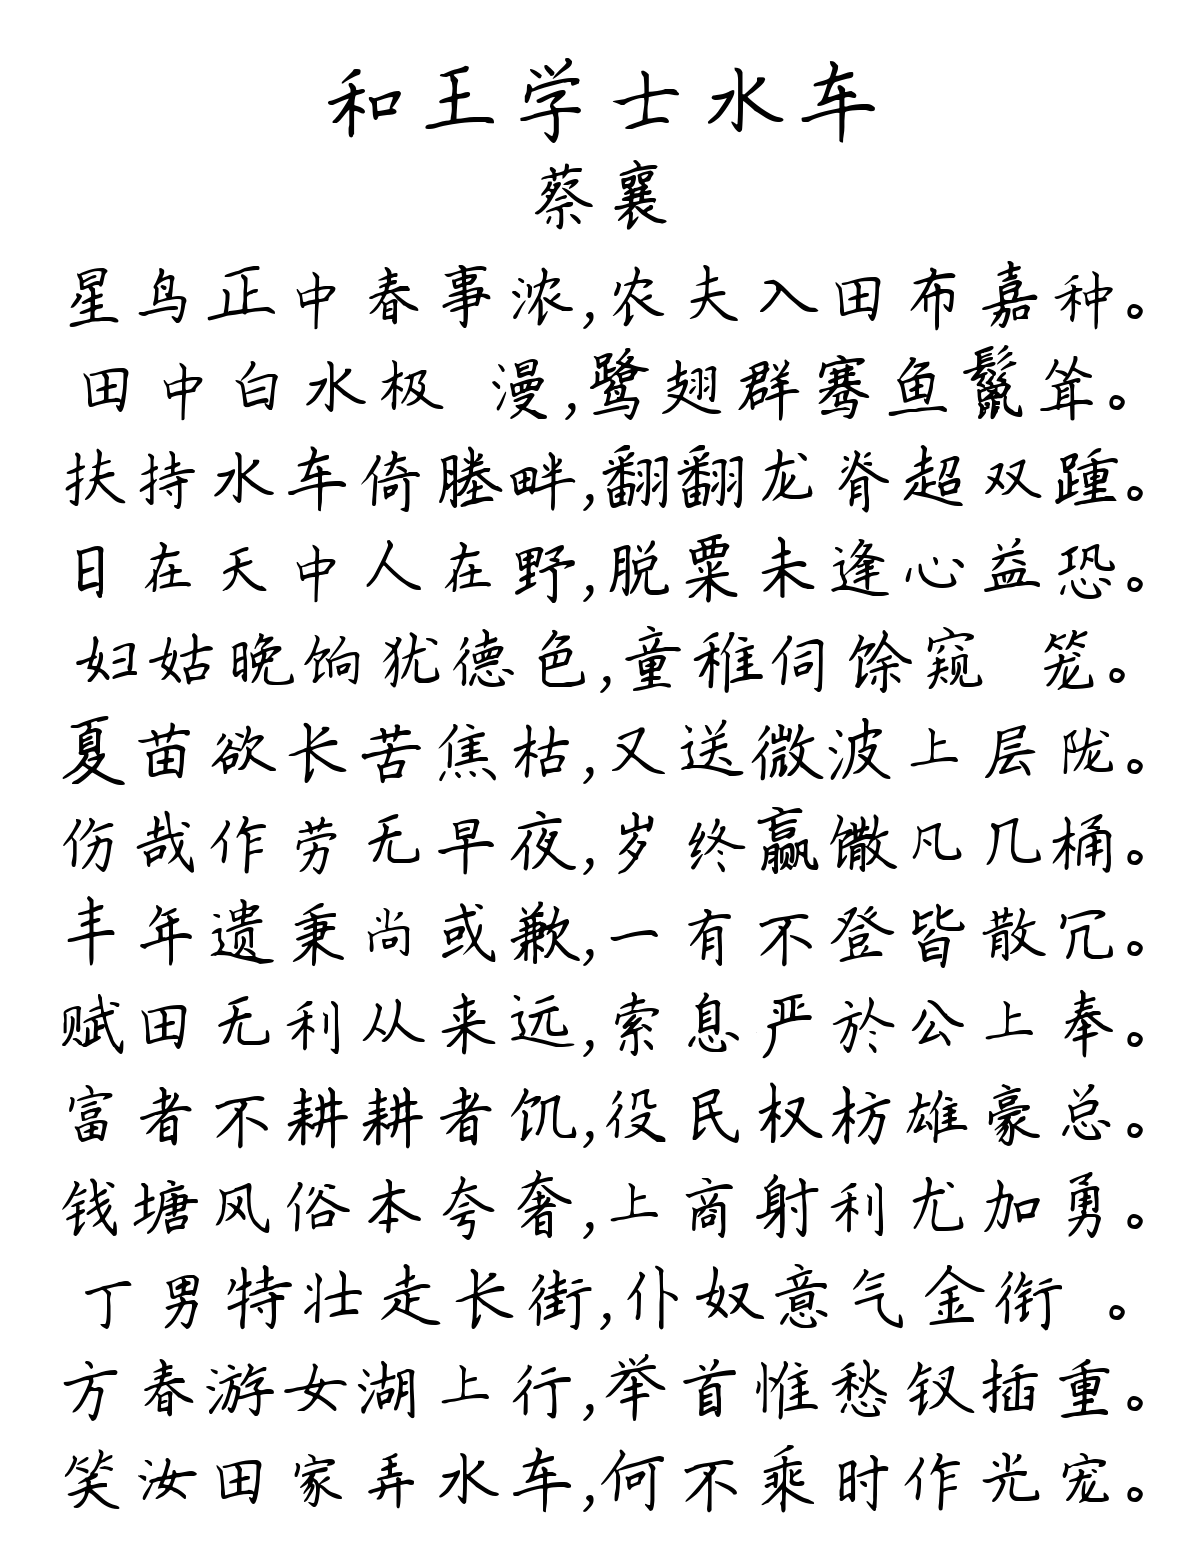 和王学士水车
蔡襄
星鸟正中春事浓,农夫入田布嘉种。
田中白水极 漫,鹭翅群骞鱼鬣耸。
扶持水车倚塍畔,翻翻龙脊超双踵。
日在天中人在野,脱粟未逢心益恐。
妇姑晚饷犹德色,童稚伺馀窥 笼。
夏苗欲长苦焦枯,又送微波上层陇。
伤哉作劳无早夜,岁终赢馓凡几桶。
丰年遗秉尚或歉,一有不登皆散冗。
赋田无利从来远,索息严於公上奉。
富者不耕耕者饥,役民权枋雄豪总。
钱塘风俗本夸奢,上商射利尤加勇。
丁男特壮走长街,仆奴意气金衔 。
方春游女湖上行,举首惟愁钗插重。
笑汝田家弄水车,何不乘时作光宠。